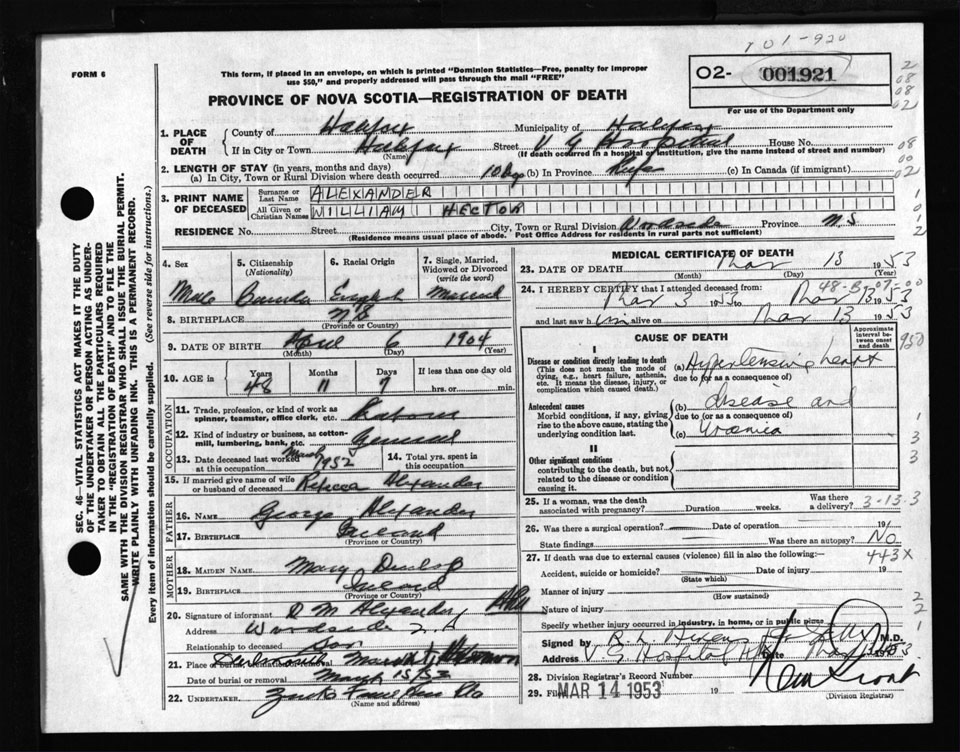 701-920
FORM 6
This form, if placed in an envelope, on which is printed "Dominion Statistics—Free, penalty for improper
use $50," and properly addressed will pass through the mail "FREE"
O2- 001921
PROVINCE OF NOVA SCOTIA—REGISTRATION OF DEATH
For use of the Department only
1. PLACE OF DEATH
County of Halifax Municipality of Halifax
If in City or Town Halifax Street V G Hospital House No.
(Name) (If death occurred in a hospital or institution, give the name instead of street and number)
2. LENGTH OF STAY (in years, months and days)
(a) In City, Town or Rural Division where death occurred 10 days (b) In Province Life (c) In Canada (if immigrant)
3. PRINT NAME OF DECEASED
Surname or Last Name ALEXANDER
All Given or Christian Names WILLIAM HECTOR
RESIDENCE No. Street City, Town or Rural Division Woodside Province N.S.
(Residence means usual place of abode. Post Office Address for residents in rural parts not sufficient)
4. Sex Male
5. Citizenship (Nationality) Canada
6. Racial Origin English
7. Single, Married, Widowed or Divorced (write the word) Married
8. BIRTHPLACE N.S.
(Province or Country)
9. DATE OF BIRTH April 6 1904
(Month) (Day) (Year)
10. AGE in Years 48 Months 11 Days 7 If less than one day old hrs. or min.
OCCUPATION
11. Trade, profession, or kind of work as spinner, teamster, office clerk, etc. Labour
12. Kind of industry or business, as cotton-mill, lumbering, bank, etc. General
13. Date deceased last worked at this occupation March 1952
14. Total yrs. spent in this occupation
15. If married give name of wife or husband of deceased Rebecca Alexander
FATHER
16. NAME George Alexander
17. BIRTHPLACE Ireland
(Province or Country)
MOTHER
18. MAIDEN NAME Mary Dunlop
19. BIRTHPLACE Ireland
(Province or Country)
20. Signature of informant D M Alexander
Address Woodside N.S.
Relationship to deceased Son
21. Place of burial, cremation or removal
Date of burial or removal March 15/53
22. UNDERTAKER
(Name and address)
MEDICAL CERTIFICATE OF DEATH
23. DATE OF DEATH Mar 13 1953
(Month) (Day) (Year)
48-B-07-00
24. I HEREBY CERTIFY that I attended deceased from:
Mar 3 1953 to Mar 13 1953
and last saw him alive on Mar 13 1953
CAUSE OF DEATH
Approximate interval between onset and death
I
Disease or condition directly leading to death
(This does not mean the mode of dying, e.g., heart failure, asthenia, etc. It means the disease, injury, or complication which caused death.)
(a) Hypertensive heart
due to (or as a consequence of)
Antecedent causes
Morbid conditions, if any, giving rise to the above cause, stating the underlying condition last.
(b) disease and
due to (or as a consequence of)
(c) Uraemia
II
Other significant conditions
contributing to the death, but not related to the disease or condition causing it.
25. If a woman, was the death associated with pregnancy? Duration weeks. Was there a delivery? 3-13-3
26. Was there a surgical operation? Date of operation 19
State findings Was there an autopsy? No
27. If death was due to external causes (violence) fill in also the following: 443X
Accident, suicide or homicide? Date of injury 19
(State which)
Manner of injury
(How sustained)
Nature of injury
Specify whether injury occurred in industry, in home, or in public place
Signed by M.D.
Address V. G Hospital Date Mar 13 1953
28. Division Registrar's Record Number
29. Filed MAR 14 1953 19
(Division Registrar)
SEC. 46—VITAL STATISTICS ACT MAKES IT THE DUTY
OF THE UNDERTAKER OR PERSON ACTING AS UNDER-
TAKER TO OBTAIN ALL THE PARTICULARS REQUIRED
IN THE "REGISTRATION OF DEATH" AND TO FILE THE
SAME WITH THE DIVISION REGISTRAR WHO SHALL ISSUE THE BURIAL PERMIT.
WRITE PLAINLY WITH UNFADING INK. THIS IS A PERMANENT RECORD.
Every item of information should be carefully supplied. (See reverse side for instructions.)